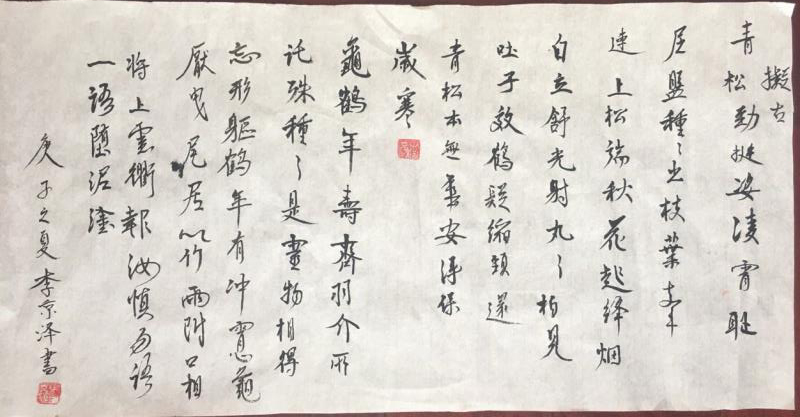 擬古
青松勁挺姿凌霄耻
屈盤種〻出枝葉牽
連上松端秋花起绛烟
自立舒光射丸〻柏見
吐子效鶴疑縮頸還
青松本無華安得保
歲寒
龜鶴年壽齊羽介所
託殊種〻是靈物相得
忘形軀鶴年有冲霄心龜
厭曳尾居以竹兩附口相
將上雲衢報汝慎勿語
一語墮泥塗
庚子之夏李京泽書